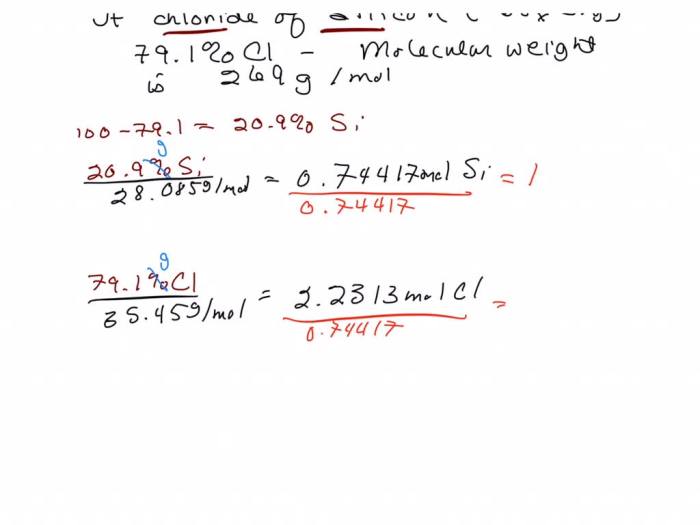 of chloride of silicon
79.1% Cl - Molecular weight
is 269 g/mol
100 - 79.1 = 20.9% Si
g
20.9% Si
28.085g/mol = 0.74417mol Si = 1
0.74417
g
79.1% Cl
35.45g/mol = 2.2313mol Cl =
0.74417